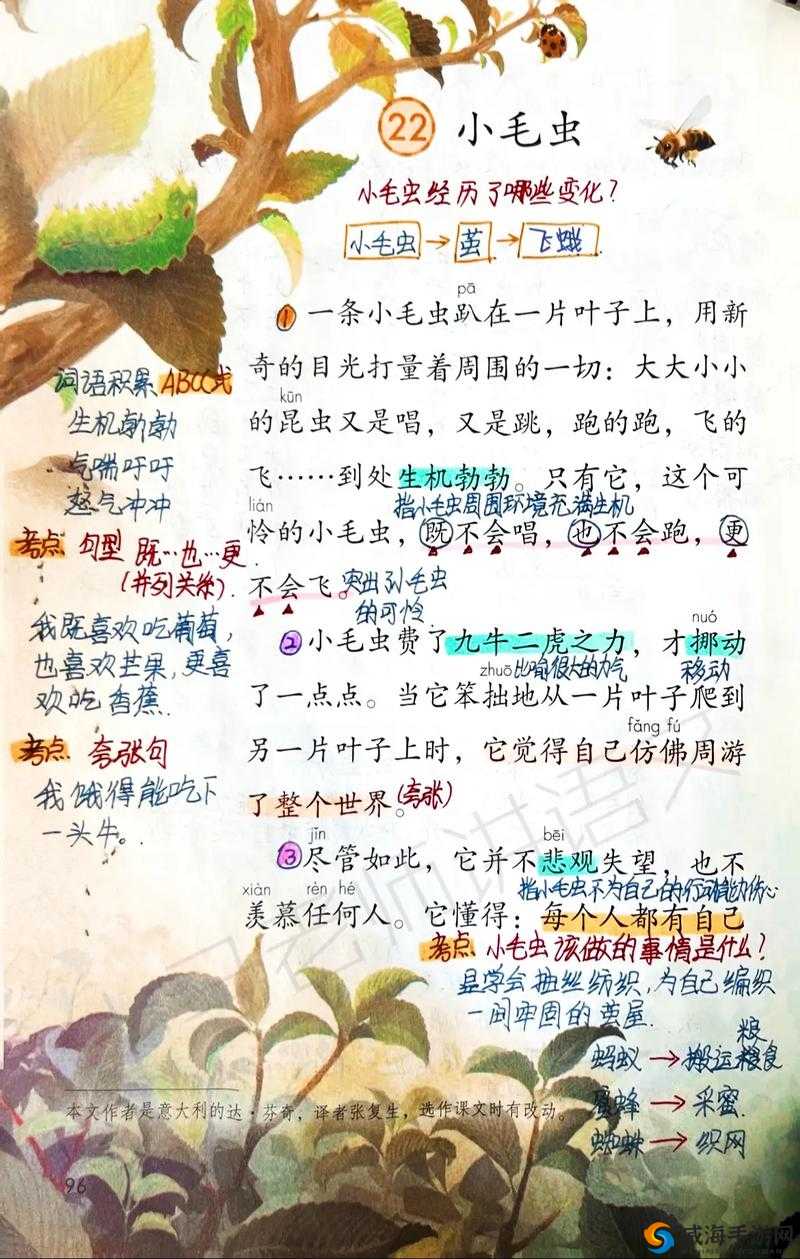 22 小毛虫
小毛虫经历了哪些变化？
小毛虫→茧→飞蛾
pā
①一条小毛虫趴在一片叶子上，用新
奇的目光打量着周围的一切：大大小小
kūn
的昆虫又是唱，又是跳，跑的跑，飞的
飞……到处生机勃勃。只有它，这个可
指小毛虫周围环境充满生机
lián
怜的小毛虫，既不会唱，也不会跑，更
不会飞。
突出了小毛虫
的可怜
nuó
②小毛虫费了九牛二虎之力，才挪动
zhuō 比喻很大的力气 移动
了一点点。当它笨拙地从一片叶子爬到
fǎng fú
另一片叶子上时，它觉得自己仿佛周游
了整个世界。(夸张)
jǐn bēi
③尽管如此，它并不悲观失望，也不
指小毛虫不为自己的行动能力伤心
xiàn rèn hé
羡慕任何人。它懂得：每个人都有自己
考点 小毛虫该做的事情是什么？
是学会抽丝纺织，为自己编织
一间牢固的茧屋.
粮
蚂蚁→搬运粮食
蜜蜂→采蜜.
蜘蛛→织网
词语积累 ABCC式
生机勃勃
气喘吁吁
怒气冲冲
考点 句型 既…也…更.
(并列关系).
我既喜欢吃葡萄，
也喜欢芒果，更喜
欢吃香蕉.
考点 夸张句
我饿得能吃下
一头牛。
本文作者是意大利的达·芬奇，译者张复生，选作课文时有改动。
96
老师讲语文
威海手游网